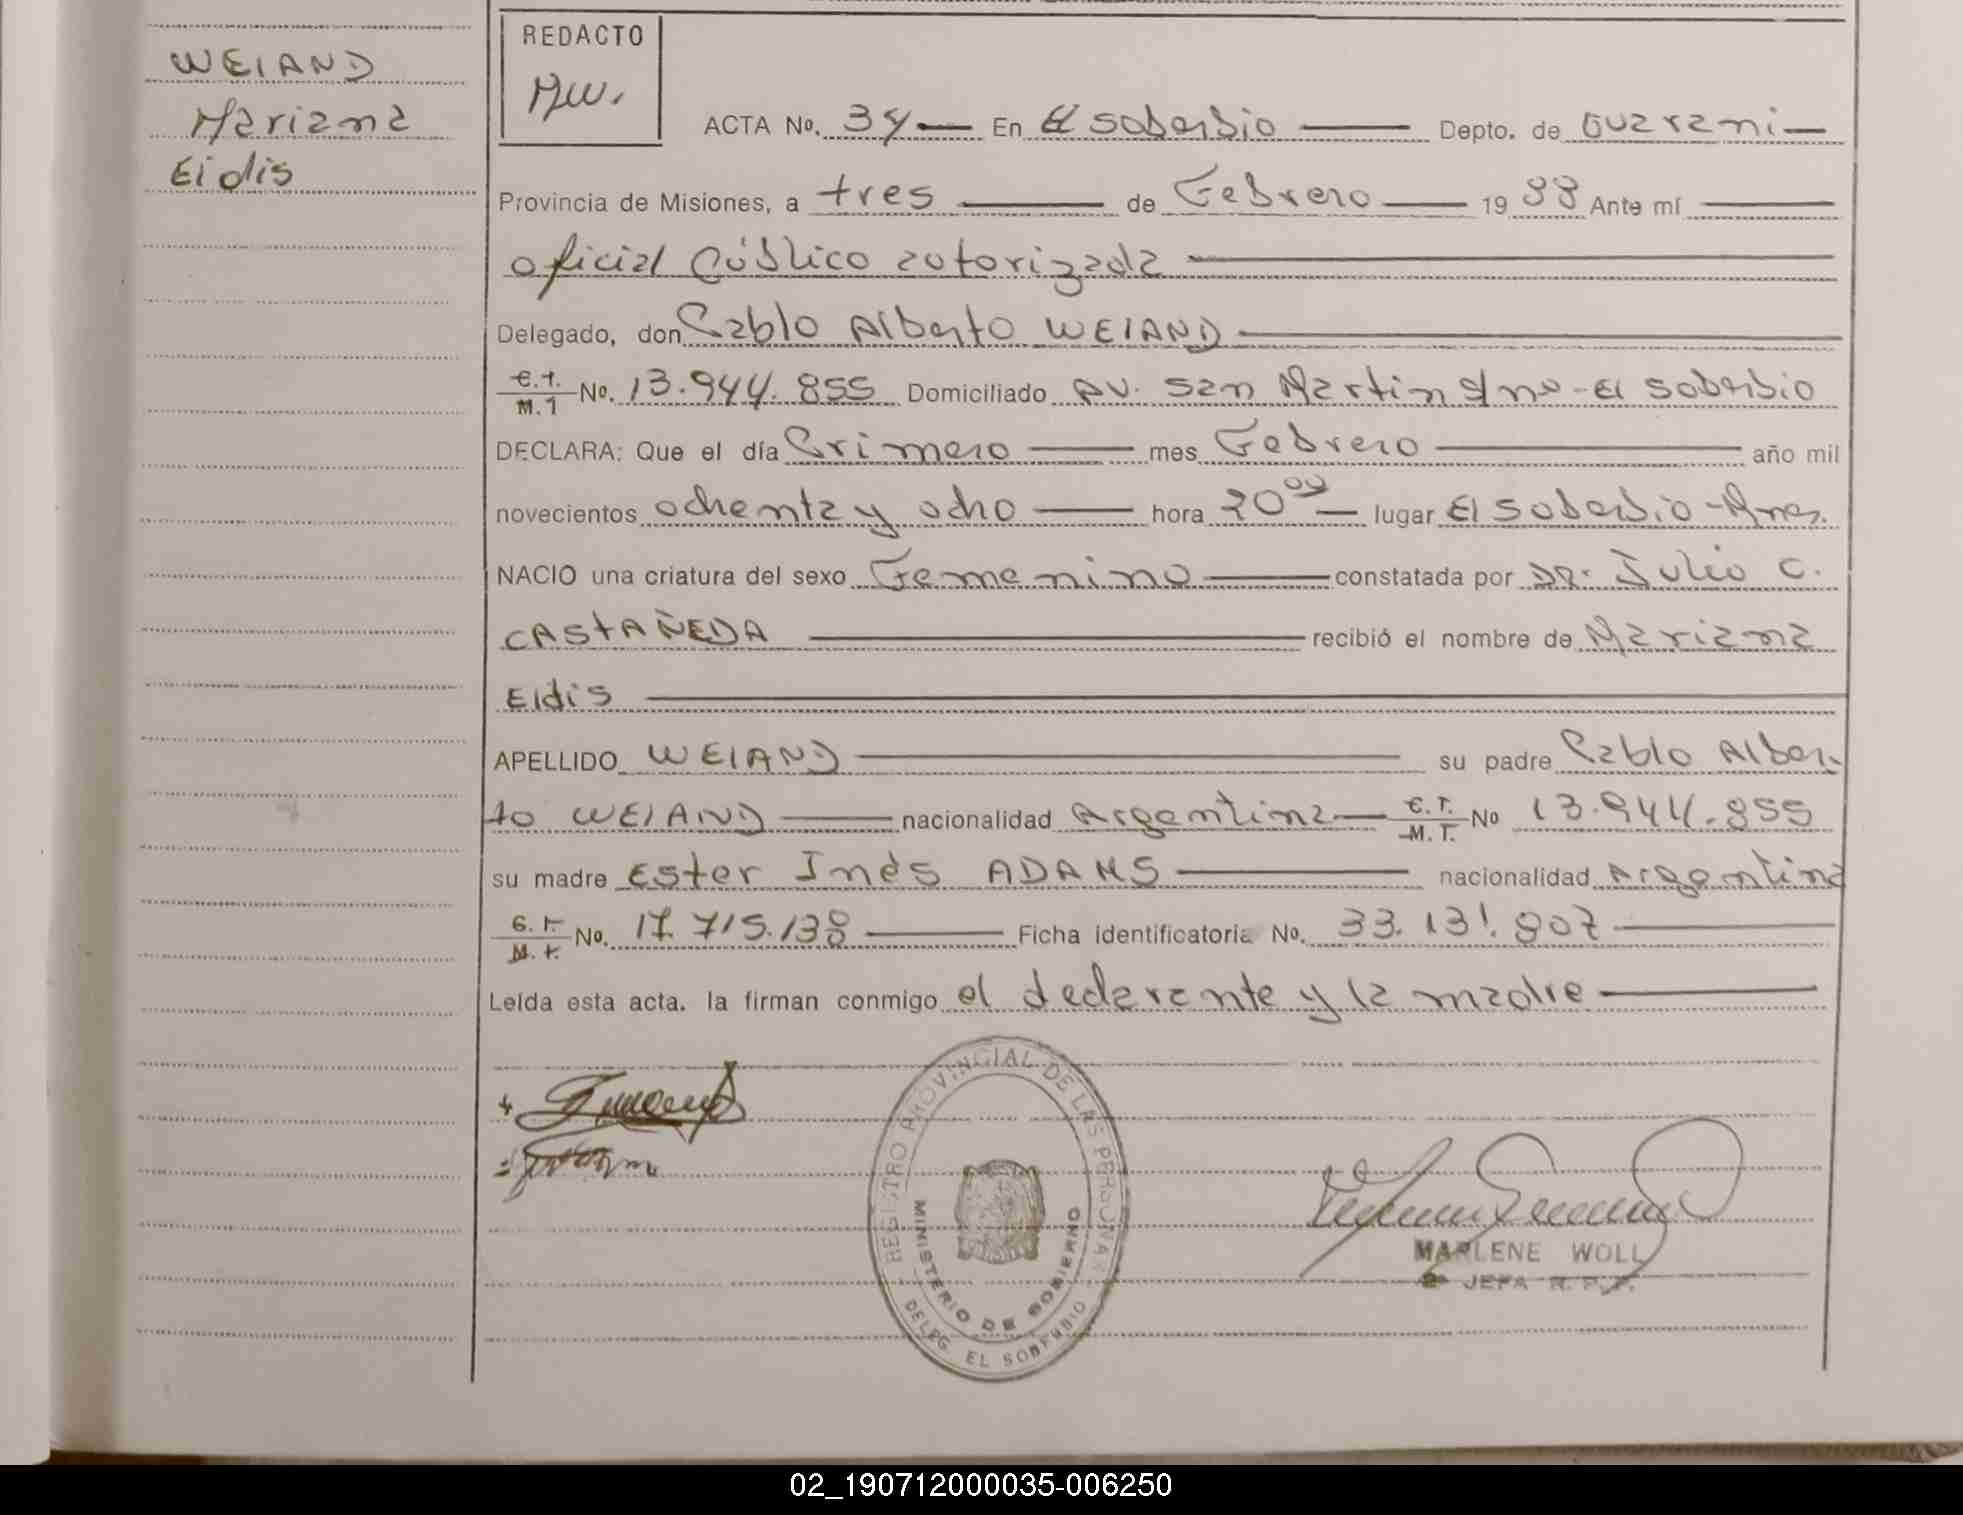 WEIAND
Mariana
Eidis
REDACTO
MW.
ACTA No. 34 En El Soberbio Depto. de Guarani
Provincia de Misiones, a tres de Febrero 19 88 Ante mí
oficial Público autorizada
Delegado, don Pablo Alberto WEIAND
C.I. M.I No. 13.944.855 Domiciliado Av. San Martin s/no - El Soberbio
DECLARA: Que el día Primero mes Febrero año mil
novecientos ochenta y ocho hora 20⁰⁰ lugar El Soberbio - Mnes.
NACIO una criatura del sexo Femenino constatada por DR. Julio C.
CASTAÑEDA recibió el nombre de Mariana
Eidis
APELLIDO WEIAND su padre Pablo Alber-
to WEIAND nacionalidad Argentina C.I. M.I. No 13.944.855
su madre Ester Inés ADAMS nacionalidad Argentina
No. 17.715.138 Ficha identificatoria No. 33.131.807
Leída esta acta. la firman conmigo el declarante y la madre
REGISTRO PROVINCIAL DE LAS PERSONAS
MINISTERIO DE GOBIERNO
DELEG. EL SOBERBIO
MARLENE WOLL
2º JEFA R.P.P.
02_190712000035-006250